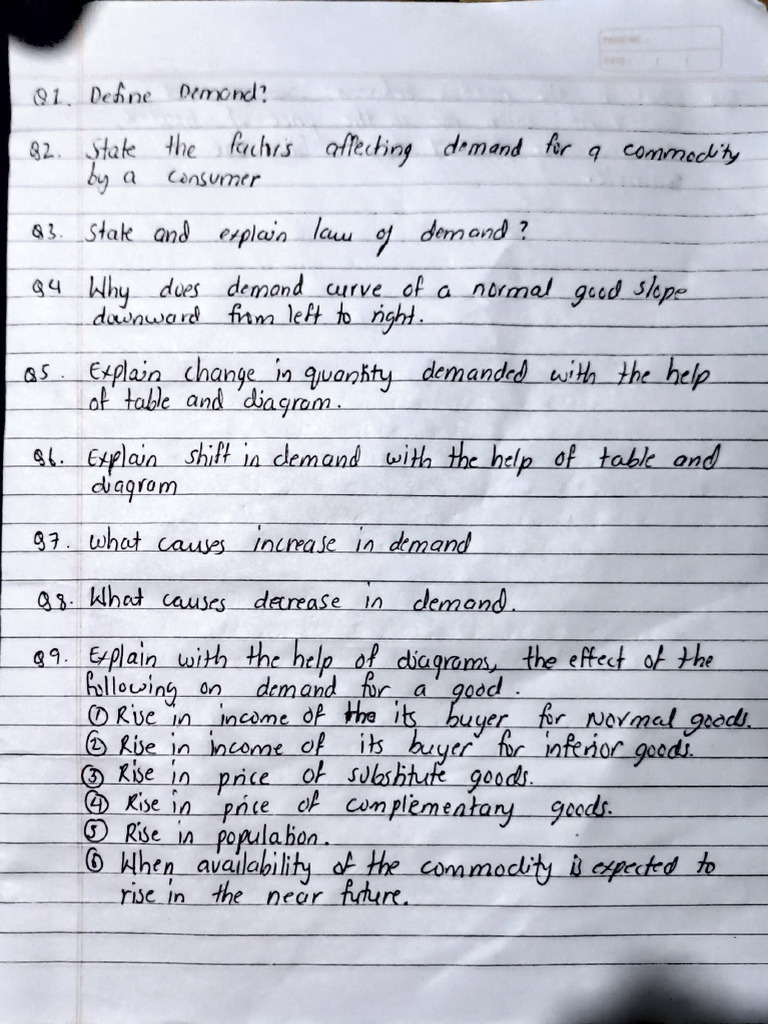 PAGE NO.:
DATE: / /
Q1. Define Demand?
Q2. State the factors affecting demand for a commodity
by a consumer
Q3. State and explain law of demand?
Q4 Why does demand curve of a normal good slope
downward from left to right.
Q5. Explain change in quantity demanded with the help
of table and diagram.
Q6. Explain shift in demand with the help of table and
diagram
Q7. What causes increase in demand
Q8. What causes decrease in demand.
Q9. Explain with the help of diagrams, the effect of the
following on demand for a good.
① Rise in income of the its buyer for Normal goods.
② Rise in income of its buyer for inferior goods.
③ Rise in price of substitute goods.
④ Rise in price of complementary goods.
⑤ Rise in population.
⑥ When availability of the commodity is expected to
rise in the near future.